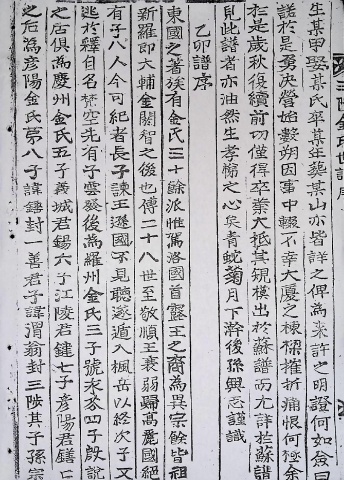 生某甲娶某氏卒某年葬某山亦皆詳之俾爲来許之明證何如僉曰
諾於是勇决營始數朔因事中輟不幸大厦之棟樑摧折痛恨何極余
於是歲秋復續前功僅得卒業大抵其規模出於蘇譜而尤詳於蘇譜
見此譜者亦油然生孝悌之心矣青蛇菊月下澣後孫興
謹識
乙卯譜序
東國之著族有金氏三十餘派惟駕洛國首露王之裔爲異宗餘皆祖
新羅即大輔金閼智之後也傳二十八世至敬順王衰弱歸高麗國絕
有子八人今可紀者長子諫王遜國不見聽遂遁入楓岳以終次子又
逃於釋自名梵空先有子雲發後爲羅州金氏三子號永芬四子殷說
之后俱爲慶州金氏五子義城君錫六子江陵君鍵七子彦陽君鐥
之后爲彦陽金氏第八子諱錘封一善君子諱渭翁封三陟其子孫宗
三陟金氏世譜序